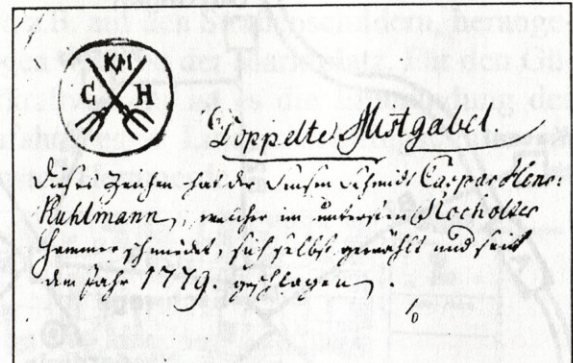 KM
C H
Doppelte Mistgabel
Dieses Zeichen hat der Sensen Schmidt Caspar Henr:
Kuhlmann, welcher im untersten Nocholter
Hammer schmiedet, sich selbst gewählt und seit
dem Jahr 1779 geschlagen